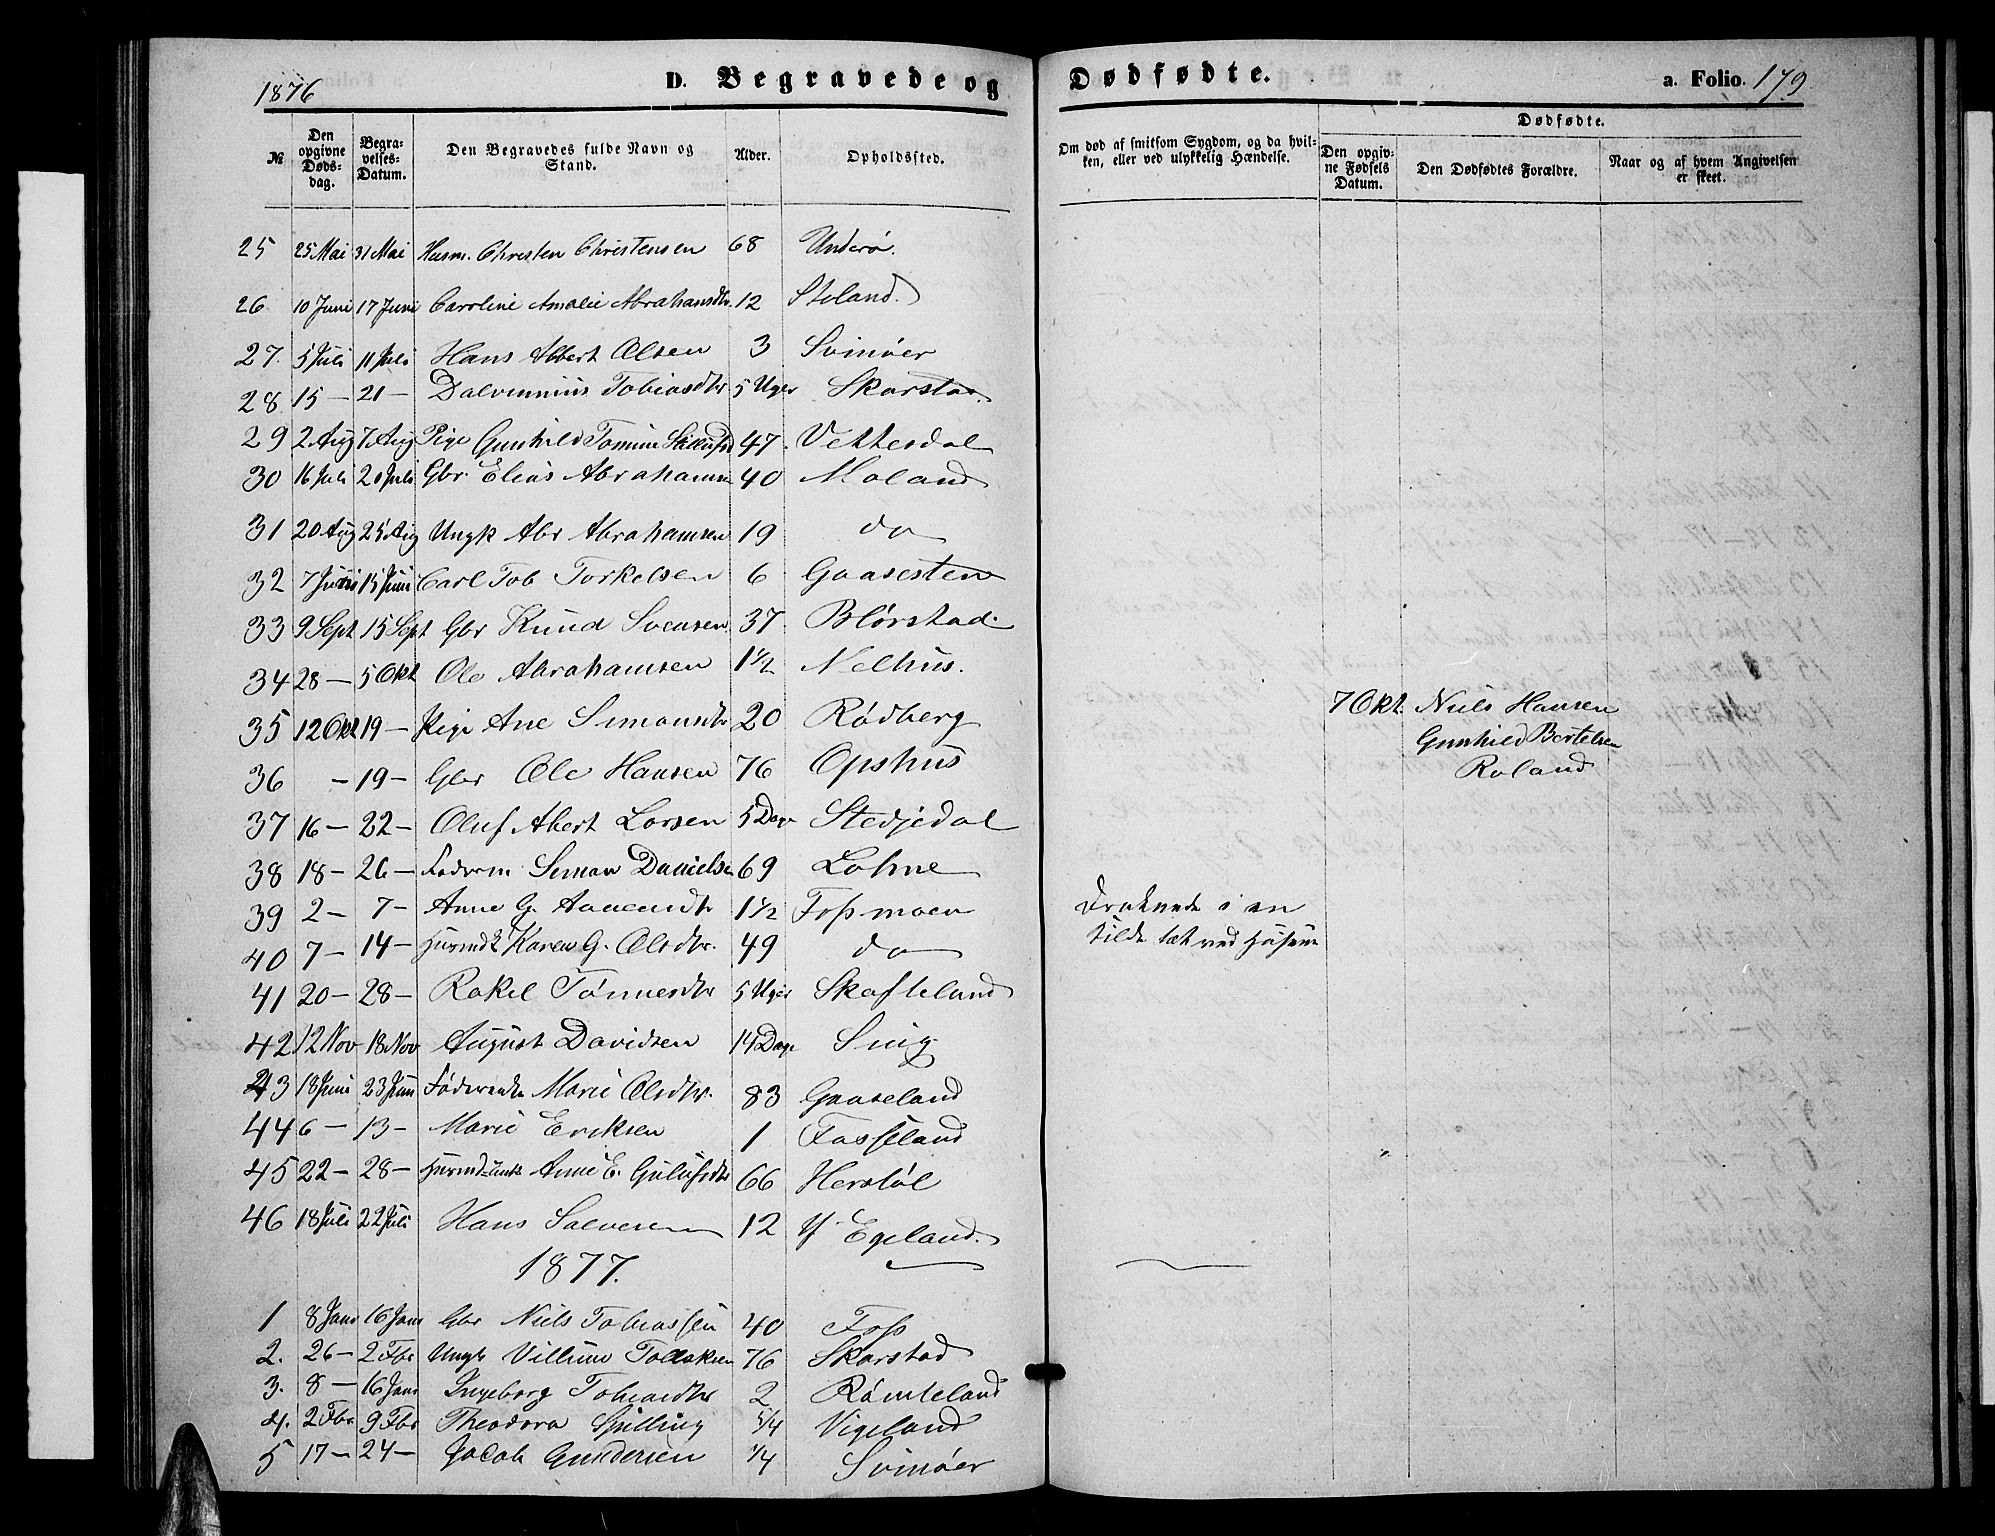 1876
D. Begravede og Dødfødte.
a. Folio. 179
№
Den opgivne Døds-dag.
Begra-velses-Datum.
Den Begravedes fulde Navn og Stand.
Alder.
Opholdssted.
Om død af smitsom Sygdom, og da hvil-ken, eller ved ulykkelig Hændelse.
Dødfødte.
Den opgiv-ne Fødsels Datum.
Den Dødfødtes Forældre.
Naar og af hvem Angivelsen er skeet.
25 25 Mai 31 Mai Husm. Christen Christensen 68 Underø.
26 10 Juni 17 Juni Caroline Amalie Abrahamsdtr. 12 Stoland.
27. 5 Juli 11 Juli Hans Albert Olsen 3 Svinøer
28. 15 — 21 — Tobiasdtr 5 Uger Skarstad
29 2 Aug 7 Aug Pige Gunhild Tomine 47. Vettesdal
30 16 Juli 20 Juli Gbr. Elias Abrahamsen 40 Moland
31 20 Aug 25 Aug Ungk Abr Abrahamsen 19 do
32 7 Juni 15 Juni Carl Tob Torkelsen 6 Gaasesten
33 9 Sept 15 Sept Gbr Knud Svensen 37 Blørstad.
34 28 — 5 Okt Ole Abrahamsen 1 1/2 Nelhus.
35 12 Okt 19 — Pige Ane Simonsdtr 20 Rødberg
7 Okt. Niels Hansen
Gunhild Bertelsen
Roland
36 — 19 — Gbr Ole Hansen 76 Opshus
37 16 — 22 — Oluf Abert Larsen 5 Dage Stedjedal
38 18 — 26 — Simon Danielsen 69 Lohne
39 2 — 7 — Anne G. Aanensdtr 1 1/2 Fossmoen
Druknede i en
Kilde tæt ved Husene
40 7 — 14 — Karen G. Olsdtr. 49 do
41 20 — 28 — Rakel Tønnesdtr 5 Uger Skofteland
42 12 Nov 18 Nov August Davidsen 14 Dage
43 18 Juni 23 Juni Marie Olsdtr. 83 Gaaseland
44 6 — 13 — Marie Eriksen 1 Fasseland
45 22 — 28 — Anne E. 66 Herstøl
46 18 Juli 22 Juli Hans Salvesen 12 Y Egeland.
1877.
1 8 Janr 16 Janr Gbr Niels Tobiassen 40 Foss
2. 26 — 2 Fbr Ungk Villum Tollaksen 76 Skarstad
3. 8 — 16 Janr Ingeborg Tobiasdtr 2 Rømteland
4. 2 Fbr 9 Fbr Theodora Spilling 5/4 Vigeland
5 17 — 24 — Jacob Gundersen 1/4 Svinøer